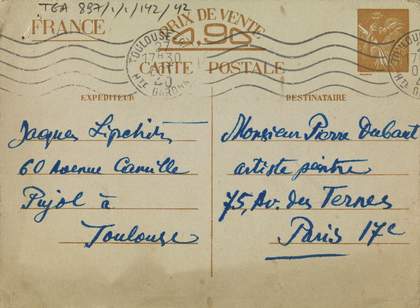 TGA 897/1/1/142/42
FRANCE
PRIX DE VENTE
0,90
CARTE POSTALE
TOULOUSE
17H30
HTE GARONNE
EXPÉDITEUR
Jacques Lipchitz
60 Avenue Camille
Pujol à
Toulouse
DESTINATAIRE
Monsieur Pierre Dubaut
artiste peintre
75, Av. des Ternes
Paris 17e